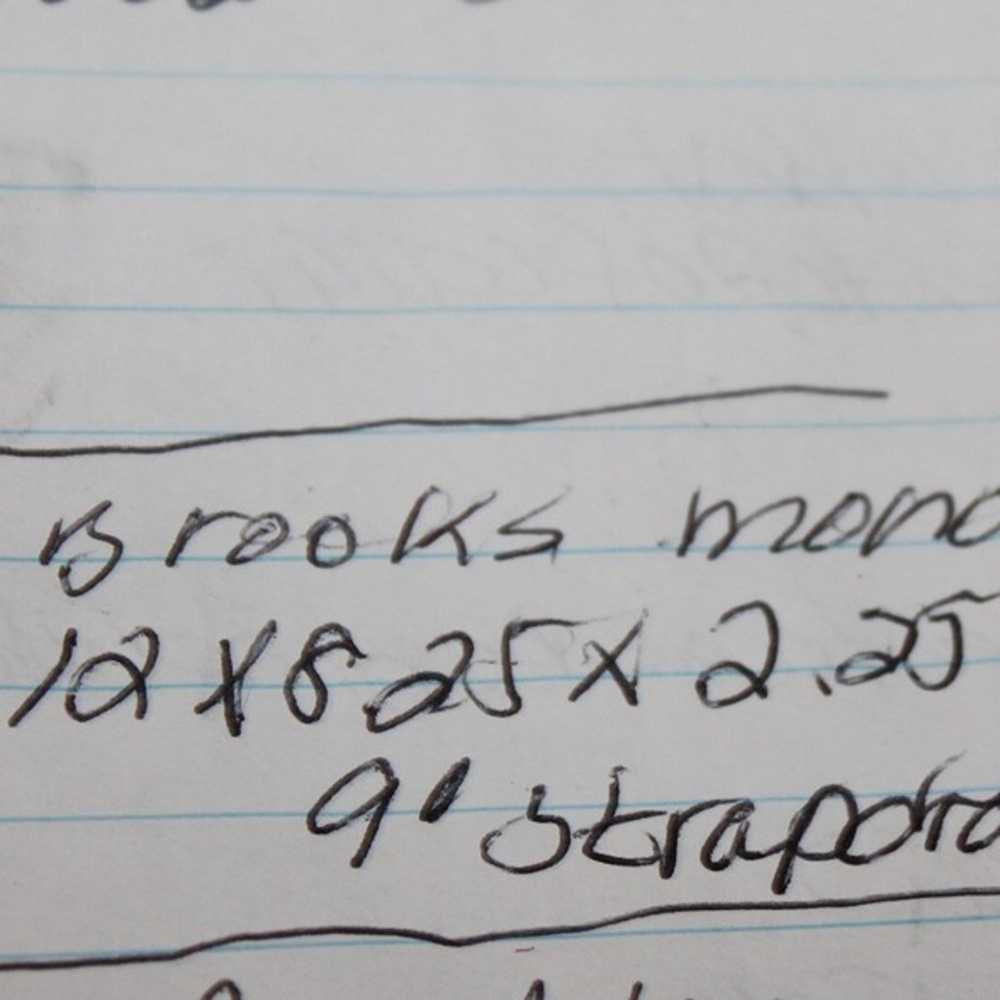 Brooks mono
12 x 8.25 x 2.25
9' strapdro